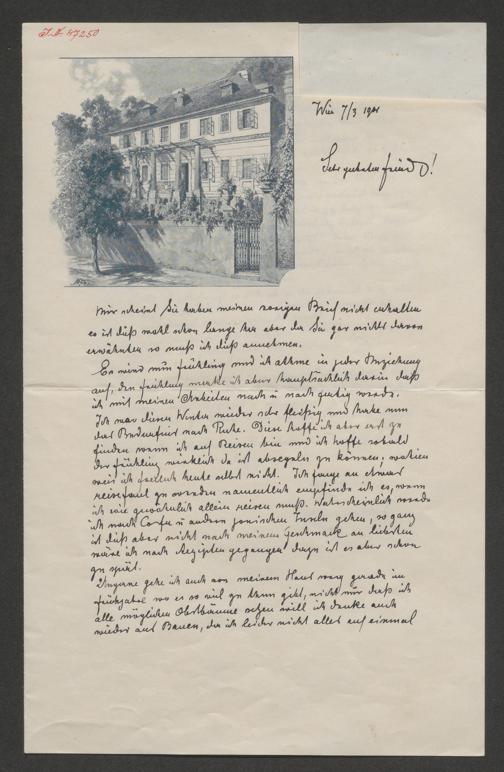 I.N. 47250
Wien 7/3 1901
Sehr geehrter Freund!
Mir scheint Sie haben meinen vorigen Brief nicht erhalten
es ist dieß wohl schon lange her aber da Sie gar nichts davon
erwähnten so muß ich dieß annehmen.
Es wird nun Frühling und ich athme in jeder Beziehung
auf, den Frühling merke ich aber hauptsächlich darin daß
ich mit meinen Arbeiten nach u nach fertig werde.
Ich war diesen Winter wieder sehr fleißig und habe nun
das Bedürfnis nach Ruhe. Diese hoffe ich aber erst zu
finden wenn ich auf Reisen bin und ich hoffe sobald
der Frühling wirklich da ist absegeln zu können, wohin
weis ich heute selbst nicht. Ich fange an etwas
reisefaul zu werden namentlich empfinde ich es, wenn
ich wie gewöhnlich allein reisen muß. Wahrscheinlich werde
ich nach Corfu u andern jonischen Inseln gehen, so ganz
ist dieß aber nicht nach meinem Geschmack am liebsten
wäre ich nach Aegipten gegangen dazu ist es aber schon
zu spät.
Ungerne gehe ich auch von meinem Haus weg gerade im
Frühjahr wo es so viel zu thun gibt, nicht nur daß ich
alle möglichen Obstbäume setzen will ich denke auch
wieder ans Bauen, da ich leider nicht alles auf einmal